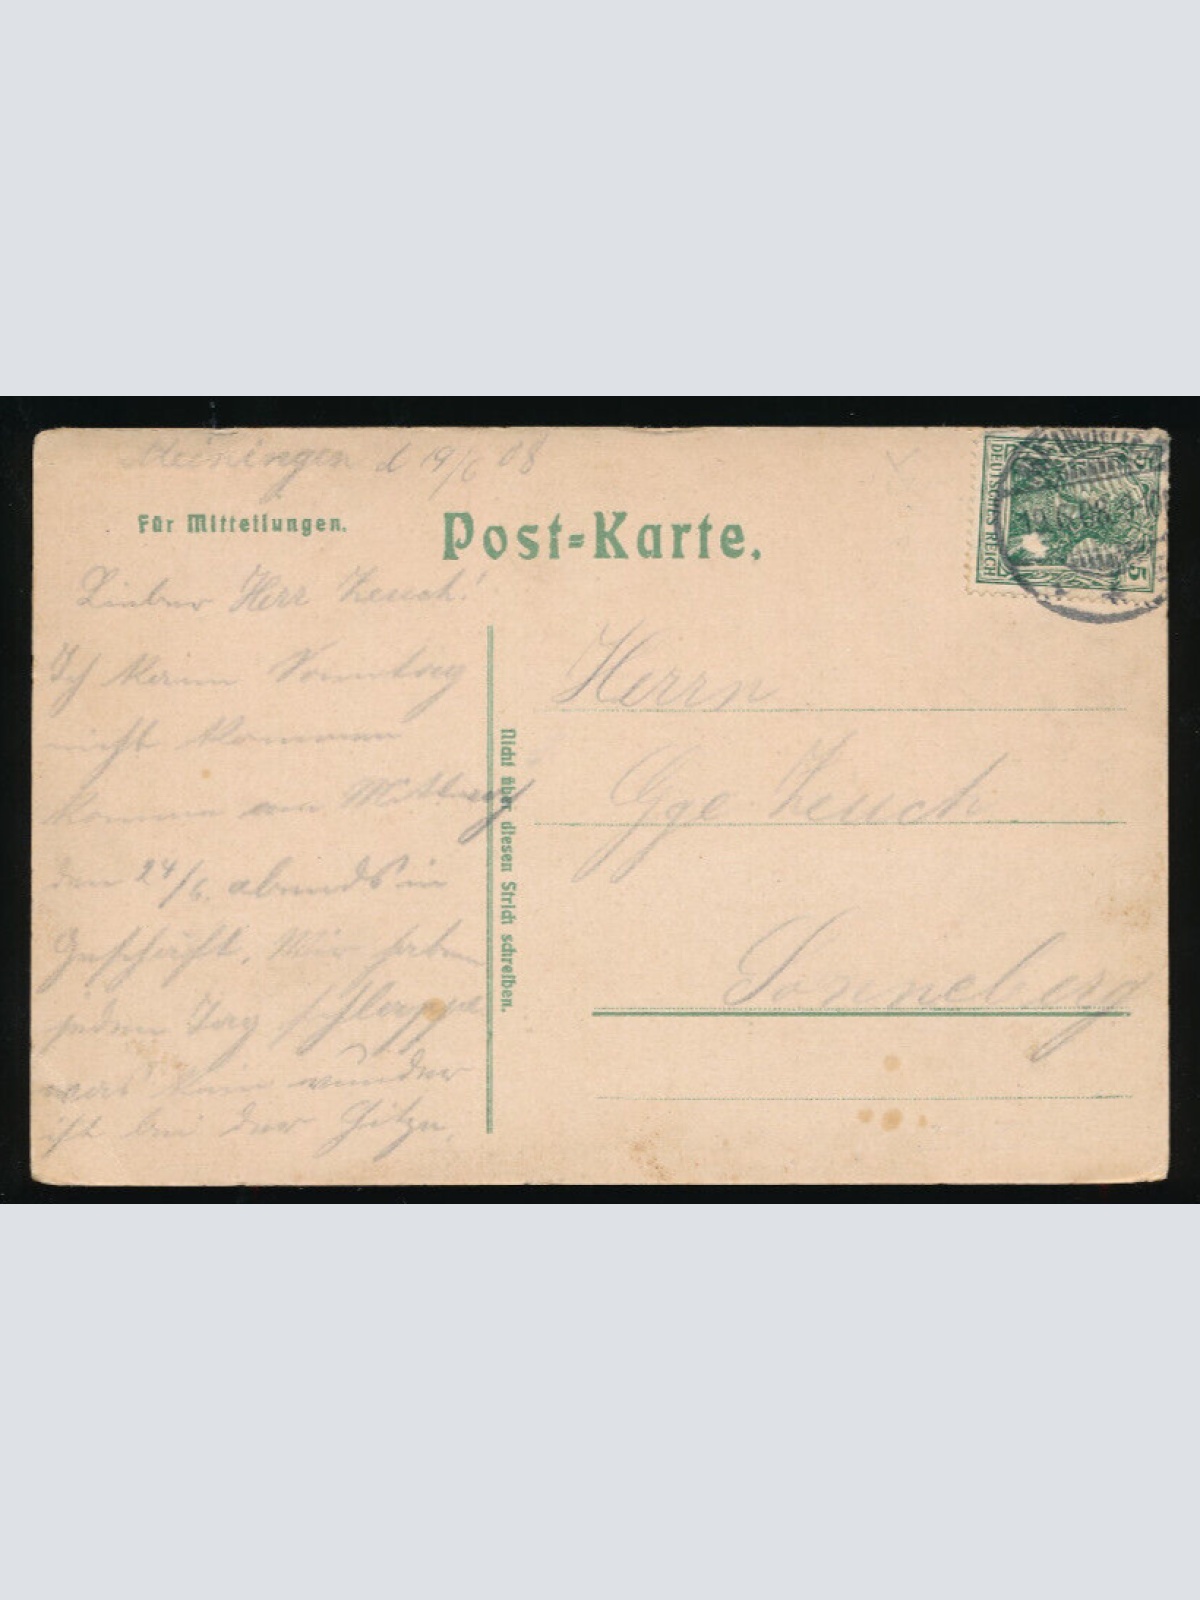 Meiningen d 19/6 08
Für Mitteilungen.
Post-Karte.
DEUTSCHES REICH
5
19.6.08
Lieber Herr Zeuch!
Ich kann Sonntag
nicht kommen
komme am Mittwoch
den 24/6. abends in
Geschäft. Wir haben
jeden Tag schlappe
was kein wunder
ist bei der Hitze.
Nicht über diesen Strich schreiben.
Herrn
Gge Zeuch
Sonneberg